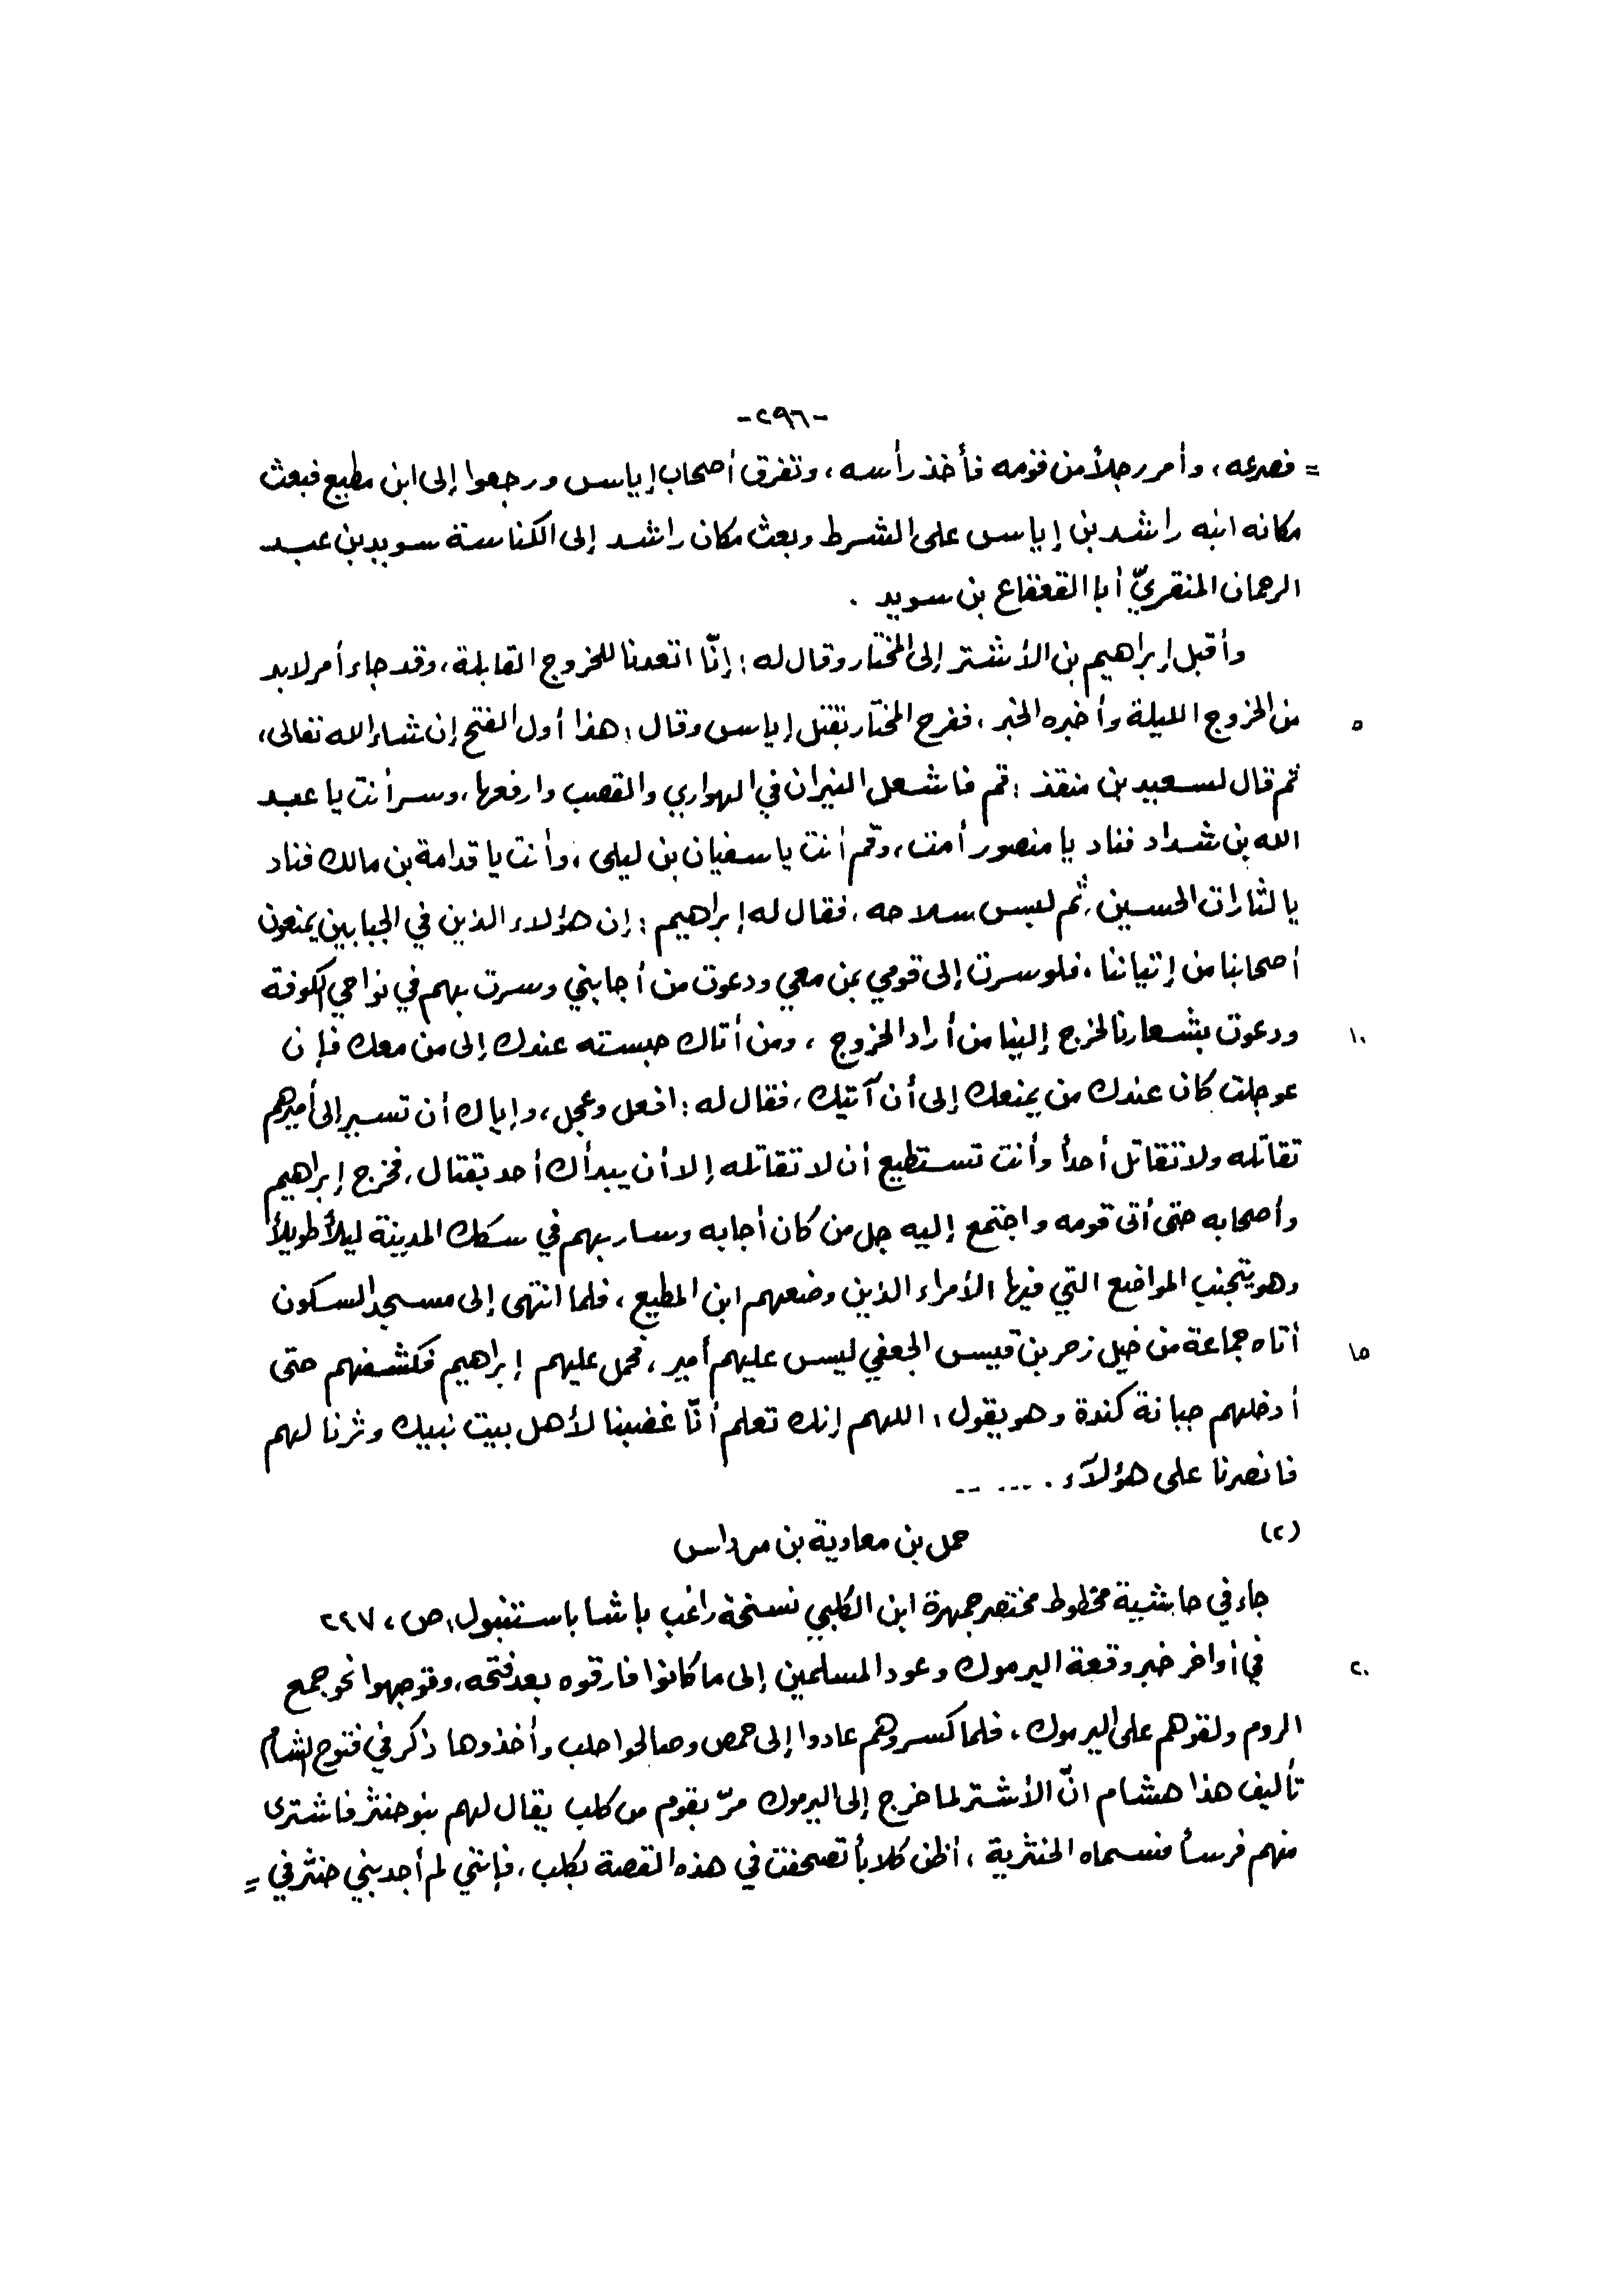 -٢٩٦-
= فصرعه، وأمر رجلاً من قومه فأخذ رأسه، وتفرق أصحاب إياس ورجعوا إلى ابن مطيع فبعث
مكانه ابنه راشد بن إياس على الشرط وبعث مكان راشد إلى الكناسة سويد بن عبد
الرحمان المنقريّ أبا القعقاع بن سويد .
وأقبل إبراهيم بن الأشتر إلى المختار وقال له : إنّا اتعدنا للخروج القابلة، وقد جاء أمر لابد
من الخروج الليلة وأخبره الخبر ، ففرح المختار بقتل إياس وقال : هذا أول الفتح إن شاء الله تعالى، ٥
ثم قال لسعيد بن منقذ : قم فاشعل النيران في الهوادي والقصب وارفعها، وسر أنت يا عبد
الله بن شداد فناد يا منصور أمت، وقم أنت يا سفيان بن ليلى، وأنت يا قدامة بن مالك فناد
يالثارات الحسين، ثم لبس سلاحه، فقال له إبراهيم : إن هؤلاء الذين في الجبابين يمنعون
أصحابنا من إتياننا، فلو سرت إلى قومي بمن معي ودعوت من أجابني وسرت بهم في نواحي الكوفة
ودعوت بشعارنا لخرج إلينا من أراد الخروج ، ومن أتاك حبسته عندك إلى من معك فإن ١٠
عوجلت كان عندك من يمنعك إلى أن آتيك، فقال له : افعل وعجل، وإياك أن تسير إلى أميرهم
تقاتله ولا تقاتل أحداً وأنت تستطيع أن لا تقاتله إلا أن يبدأك أحد بقتال، فخرج إبراهيم
وأصحابه حتى أتى قومه واجتمع إليه جل من كان أجابه وسار بهم في سكك المدينة ليلاً طويلاً
وهو يتجنب المواضع التي فيها الأمراء الذين وضعهم ابن المطيع ، فلما انتهى إلى مسجد السكون
أتاه جماعة من خيل زحر بن قيس الجعفي ليس عليهم أمير ، فحمل عليهم إبراهيم فكشفهم حتى ١٥
أدخلهم جبانة كندة وهو يقول : اللهم إنك تعلم أنّا غضبنا لأهل بيت نبيك وثرنا لهم
فانصرنا على هؤلآء . ... --
(٢) حمل بن معاوية بن مرداس
جاء في حاشية مخطوط مختصر جمهرة ابن الكلبي نسخة راغب باشا باستنبول، ص، ٢٩٧
في أواخر خبر وقعة اليرموك وعود المسلمين إلى ما كانوا فارقوه بعد فتحه، وتوجهوا نحو جمع ٢٠
الروم ولقوهم على اليرموك، فلما كسروهم عادوا إلى حمص وصالحوا حلب وأخذوها ذكر في فتوح الشام
تأليف هذا هشام انّ الأشتر لما خرج إلى اليرموك مرّ بقوم من كلب يقال لهم بنو حنثر فاشترى
منهم فرساً فسماه الحنثرية ، أظن كلاباً تصحفت في هذه القصة بكلب، فإنني لم أجد بني حنثر في =